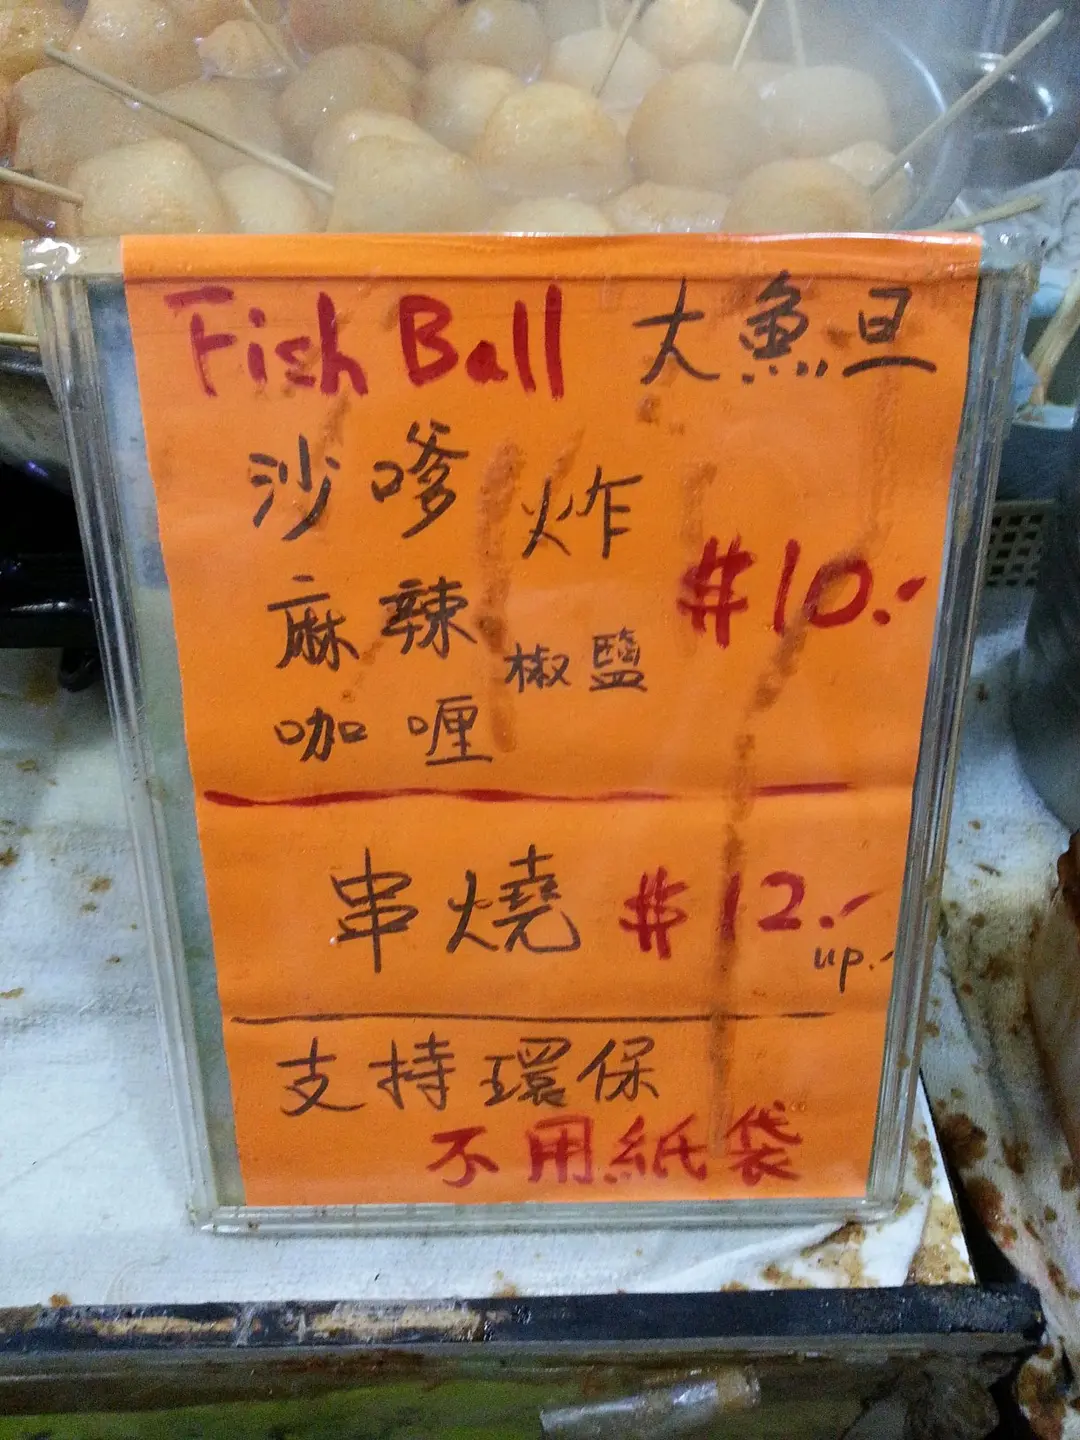 Fish Ball 大魚旦
沙嗲 炸
麻辣 椒鹽 $10.-
咖喱
串燒 $12.-
up.-
支持環保
不用紙袋